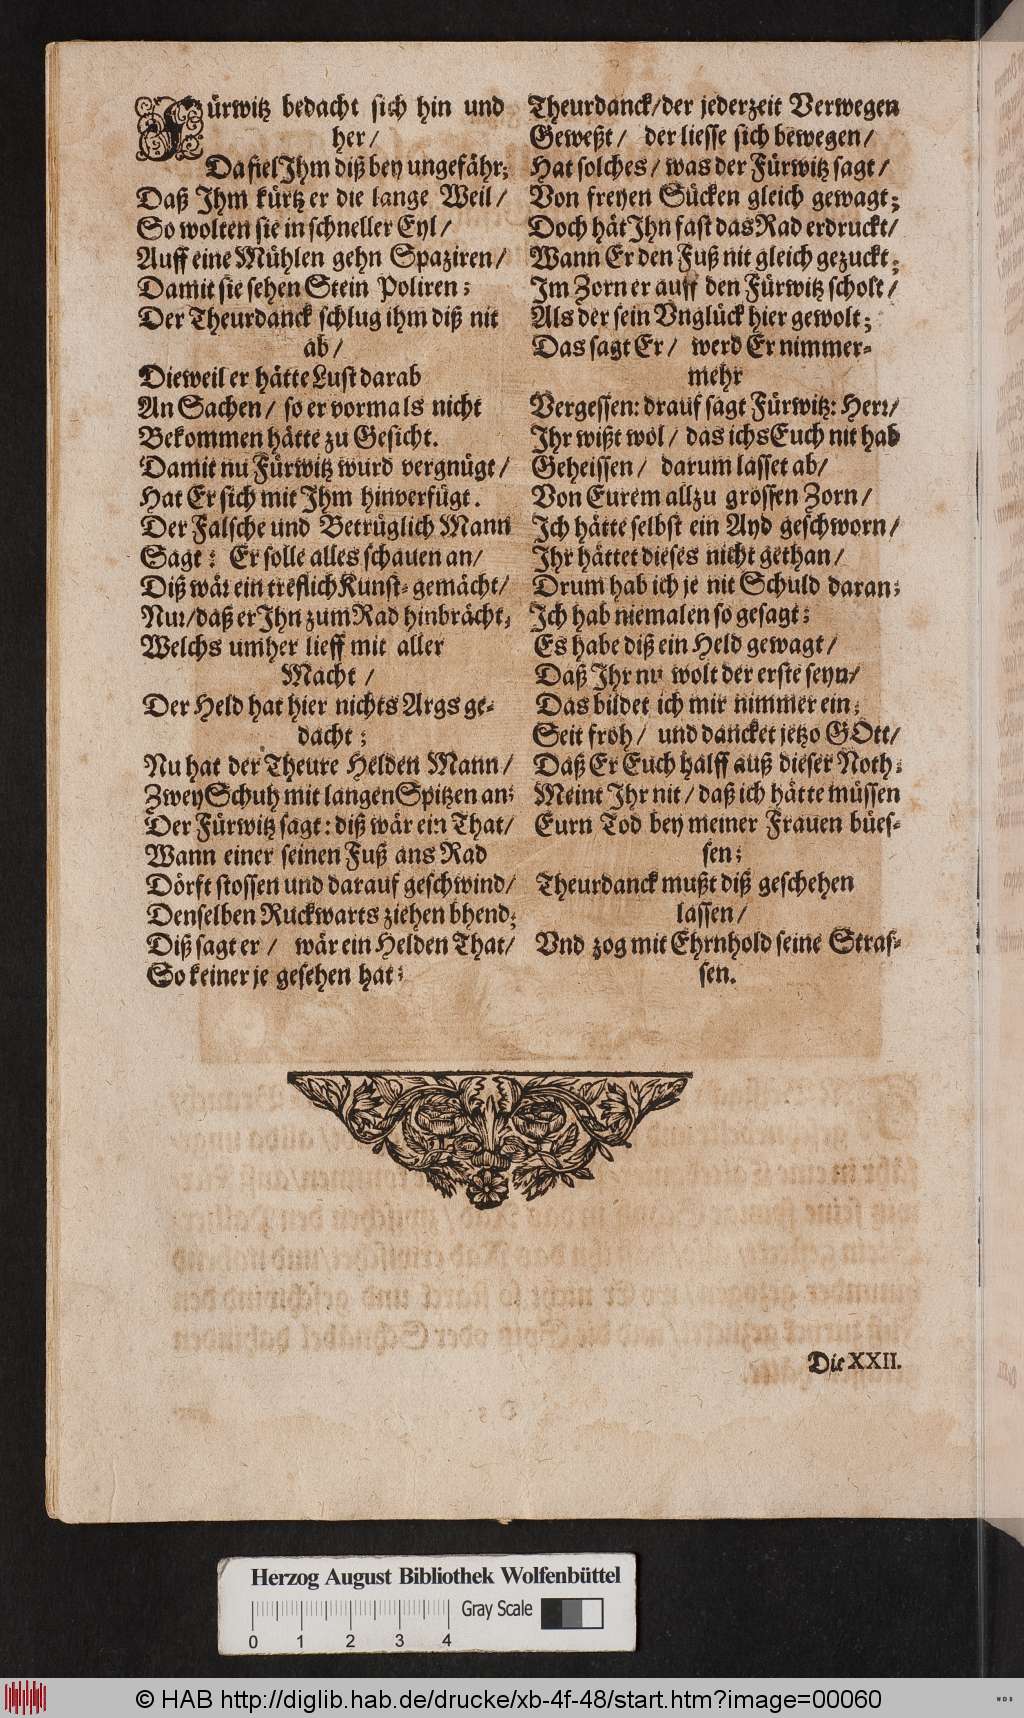 Fürwitz bedacht sich hin und
her/
Da fiel Ihm diß bey ungefähr;
Daß Ihm kürtz er die lange Weil/
So wolten sie in schneller Eyl/
Auff eine Mühlen gehn Spaziren/
Damit sie sehen Stein Poliren;
Der Theurdanck schlug ihm diß nit
ab/
Dieweil er hätte Lust darab
An Sachen/ so er vormals nicht
Bekommen hätte zu Gesicht.
Damit nu Fürwitz wurd vergnügt/
Hat Er sich mit Ihm hinverfügt.
Der Falsche und Betrüglich Mann
Sagt: Er solle alles schauen an/
Diß wär ein treflich Kunst-gemächt/
Nur/daß er Ihn zum Rad hinbrächt;
Welchs umher lieff mit aller
Macht/
Der Held hat hier nichts Args ge-
dacht;
Nu hat der Theure Helden Mann/
Zwey Schuh mit langen Spitzen an;
Der Fürwitz sagt: diß wär ein That/
Wann einer seinen Fuß ans Rad
Dörft stossen und darauf geschwind/
Denselben Ruckwarts ziehen bhend;
Diß sagt er/ wär ein Helden That/
So keiner je gesehen hat;
Theurdanck/der jederzeit Verwegen
Geweßt/ der liesse sich bewegen/
Hat solches/ was der Fürwitz sagt/
Von freyen Sücken gleich gewagt;
Doch hät Ihn fast das Rad erdruckt/
Wann Er den Fuß nit gleich gezuckt;
Im Zorn er auff den Fürwitz scholt/
Als der sein Vnglück hier gewolt;
Das sagt Er/ werd Er nimmer-
mehr
Vergessen: drauf sagt Fürwitz: Herr/
Ihr wißt wol/ das ichs Euch nit hab
Geheissen/ darum lasset ab/
Von Eurem allzu grossen Zorn/
Ich hätte selbst ein Ayd geschworn/
Ihr hättet dieses nicht gethan/
Drum hab ich je nit Schuld daran;
Ich hab niemalen so gesagt;
Es habe diß ein Held gewagt/
Daß Ihr nu wolt der erste seyn/
Das bildet ich mir nimmer ein;
Seit froh/ und dancket jetzo GOtt/
Daß Er Euch halff auß dieser Noth;
Meint Ihr nit/ daß ich hätte müssen
Eurn Tod bey meiner Frauen bües-
sen;
Theurdanck mußt diß geschehen
lassen/
Vnd zog mit Ehrnhold seine Stras-
sen.
Die XXII.
Herzog August Bibliothek Wolfenbüttel
Gray Scale
0 1 2 3 4
© HAB http://diglib.hab.de/drucke/xb-4f-48/start.htm?image=00060